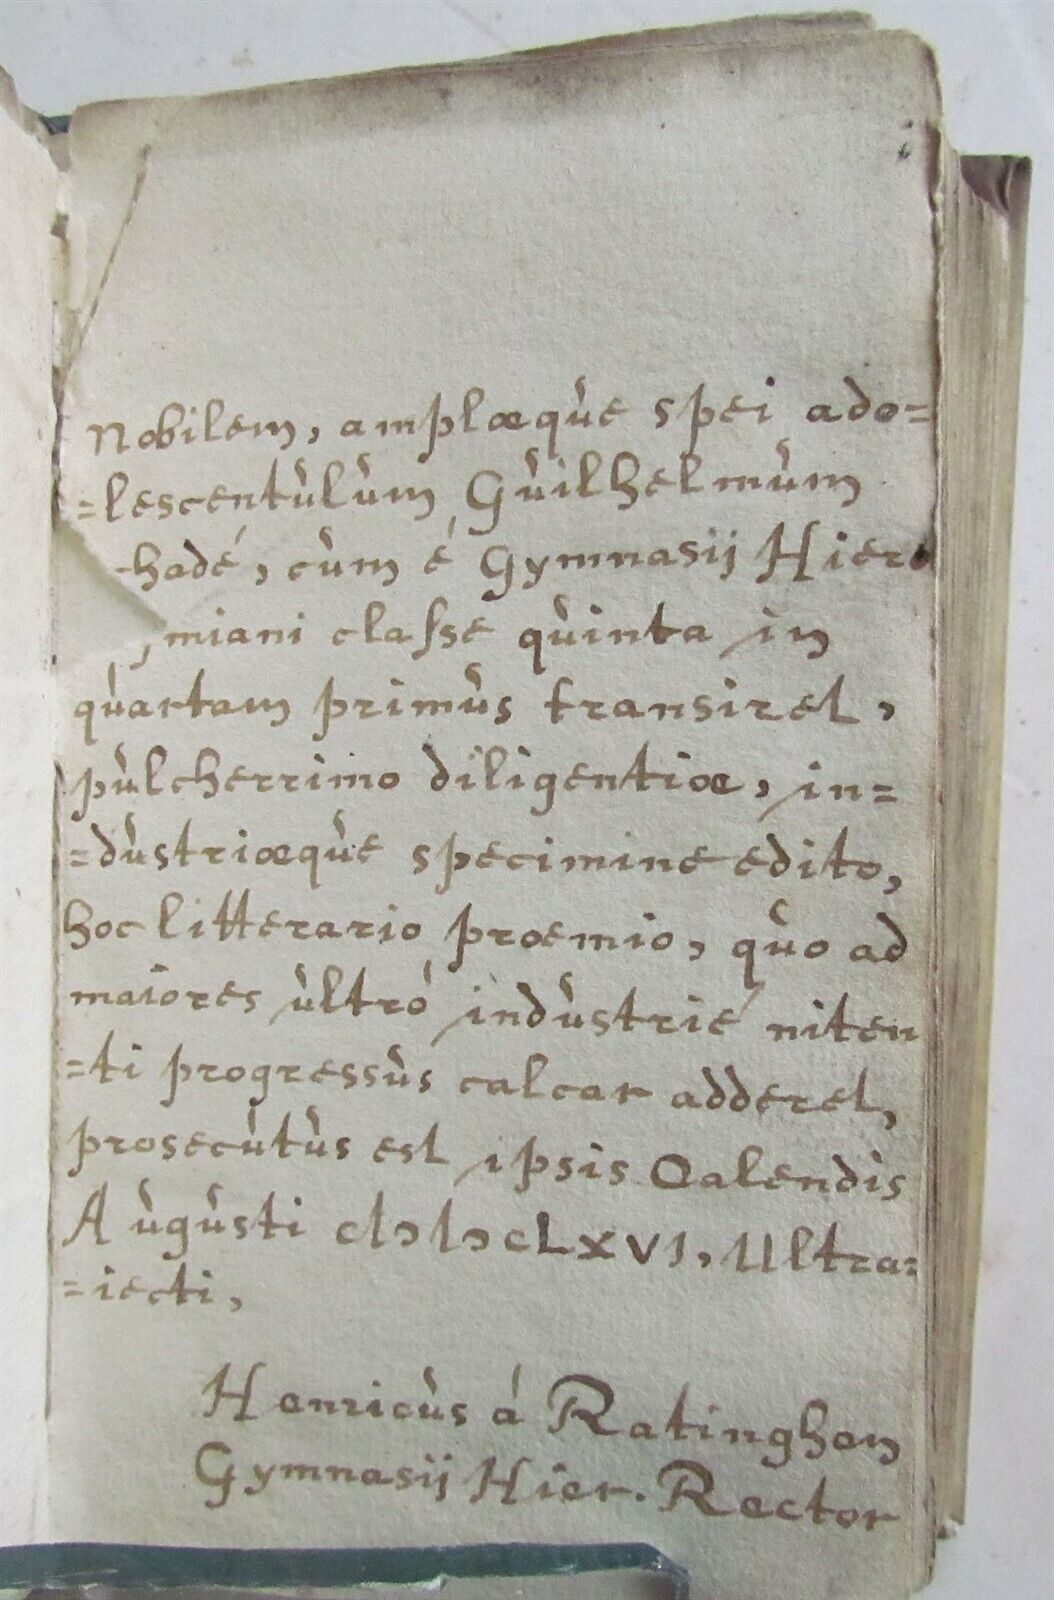 Nobilem, amplæque spei ado=
=lescentulum Guilhelmum
-hadé, cùm é Gymnasij Hiero
miani classe quinta in
quartam primus transiret,
pulcherrimo diligentiæ, in=
=dustriæque specimine edito,
hoc litterario prœmio, quo ad
maiores ultró industrié niten
=ti progressus calcar adderet,
prosecutus est ipsis Calendis
Augusti cIↄIↄcLXVI, Ultra=
=iecti,
Henricus á Ratinghen
Gymnasij Hier. Rector